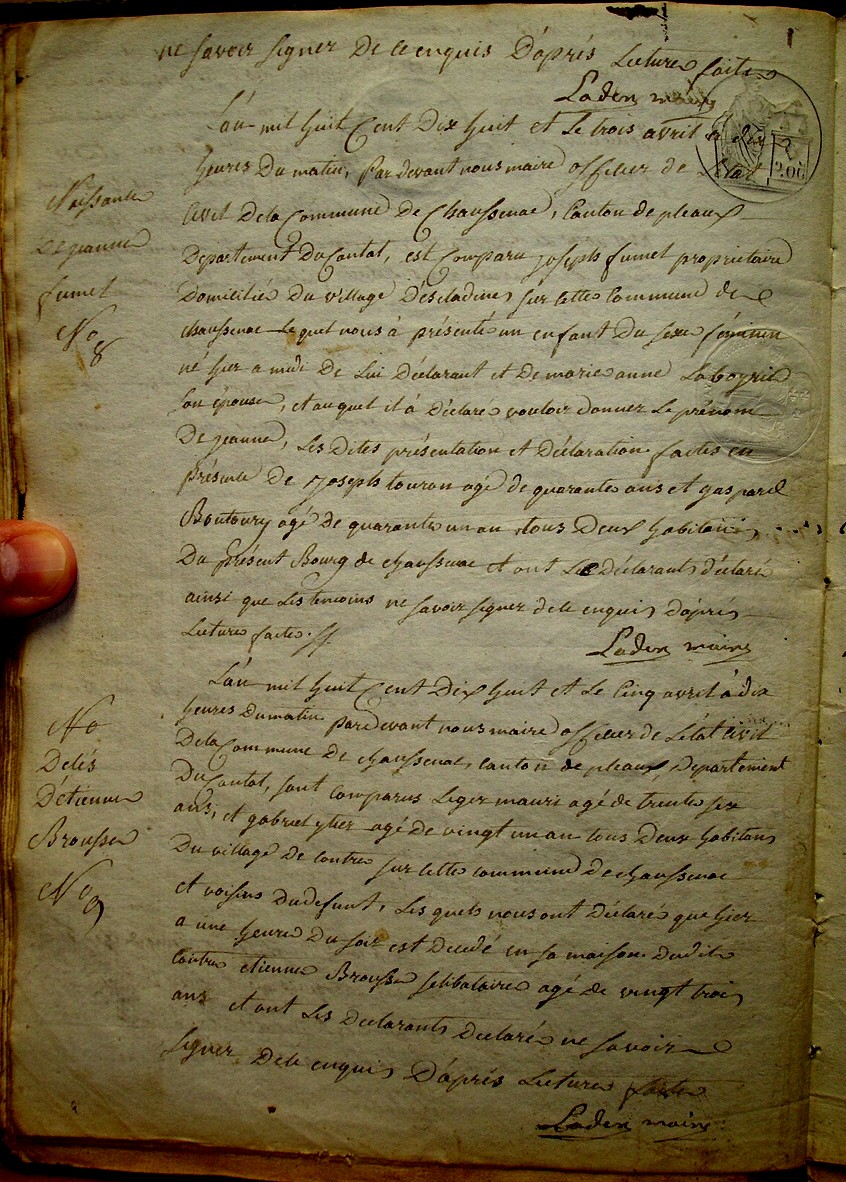 ne savoir signer de ce enquis d'après Lecture faite
Laden maire
L'an mil huit Cent Dix huit et le trois avril a dix
heures du matin, par devant nous maire officier de L'état
Civil de la Commune de Chaussenac, Canton de pleaux
Département du Cantal, est Comparu joseph fumel propriétaire
Domicilié du village D'escladines sur cette Commune de
chaussenac lequel nous à présenté un enfant du sexe féminin
né hier a midi de Lui Déclarant et de marie anne Laboyrie
son épouse, et auquel il à Déclaré vouloir donner le prénom
De jeanne, Les Dites présentation et Déclaration faites en
présence De joseph touron agé de quarante ans et gaspard
Boutoury agé de quarante un an tous Deux habitans
Du présent Bourg de chaussenac et ont Les Déclarants déclaré
ainsi que Les temoins ne savoir signer de ce enquis d'après
Lecture faite.
Laden maire
Naissance
de jeanne
fumel
No
8
L'an mil huit Cent Dix huit et Le Cinq avril à dix
heures du matin par devant nous maire officier de L'état Civil
De la Commune de chaussenac, Canton de pleaux, Département
Du Cantal, sont Comparus Leger mauri agé de trente six
ans, et gabriel ytier agé de vingt un an tous Deux habitans
Du village de Contre sur cette commune De chaussenac
et voisins du defunt, Les quels nous ont Déclaré que hier
a une heure Du soir est Decedé en sa maison dudit
Contre etienne Brousse selibataire agé de vingt trois
ans et ont Les Declarants Declaré ne savoir
signer De ce enquis D'après Lecture faite
Laden maire
No
Decés
D'étienne
Brousse
No 9